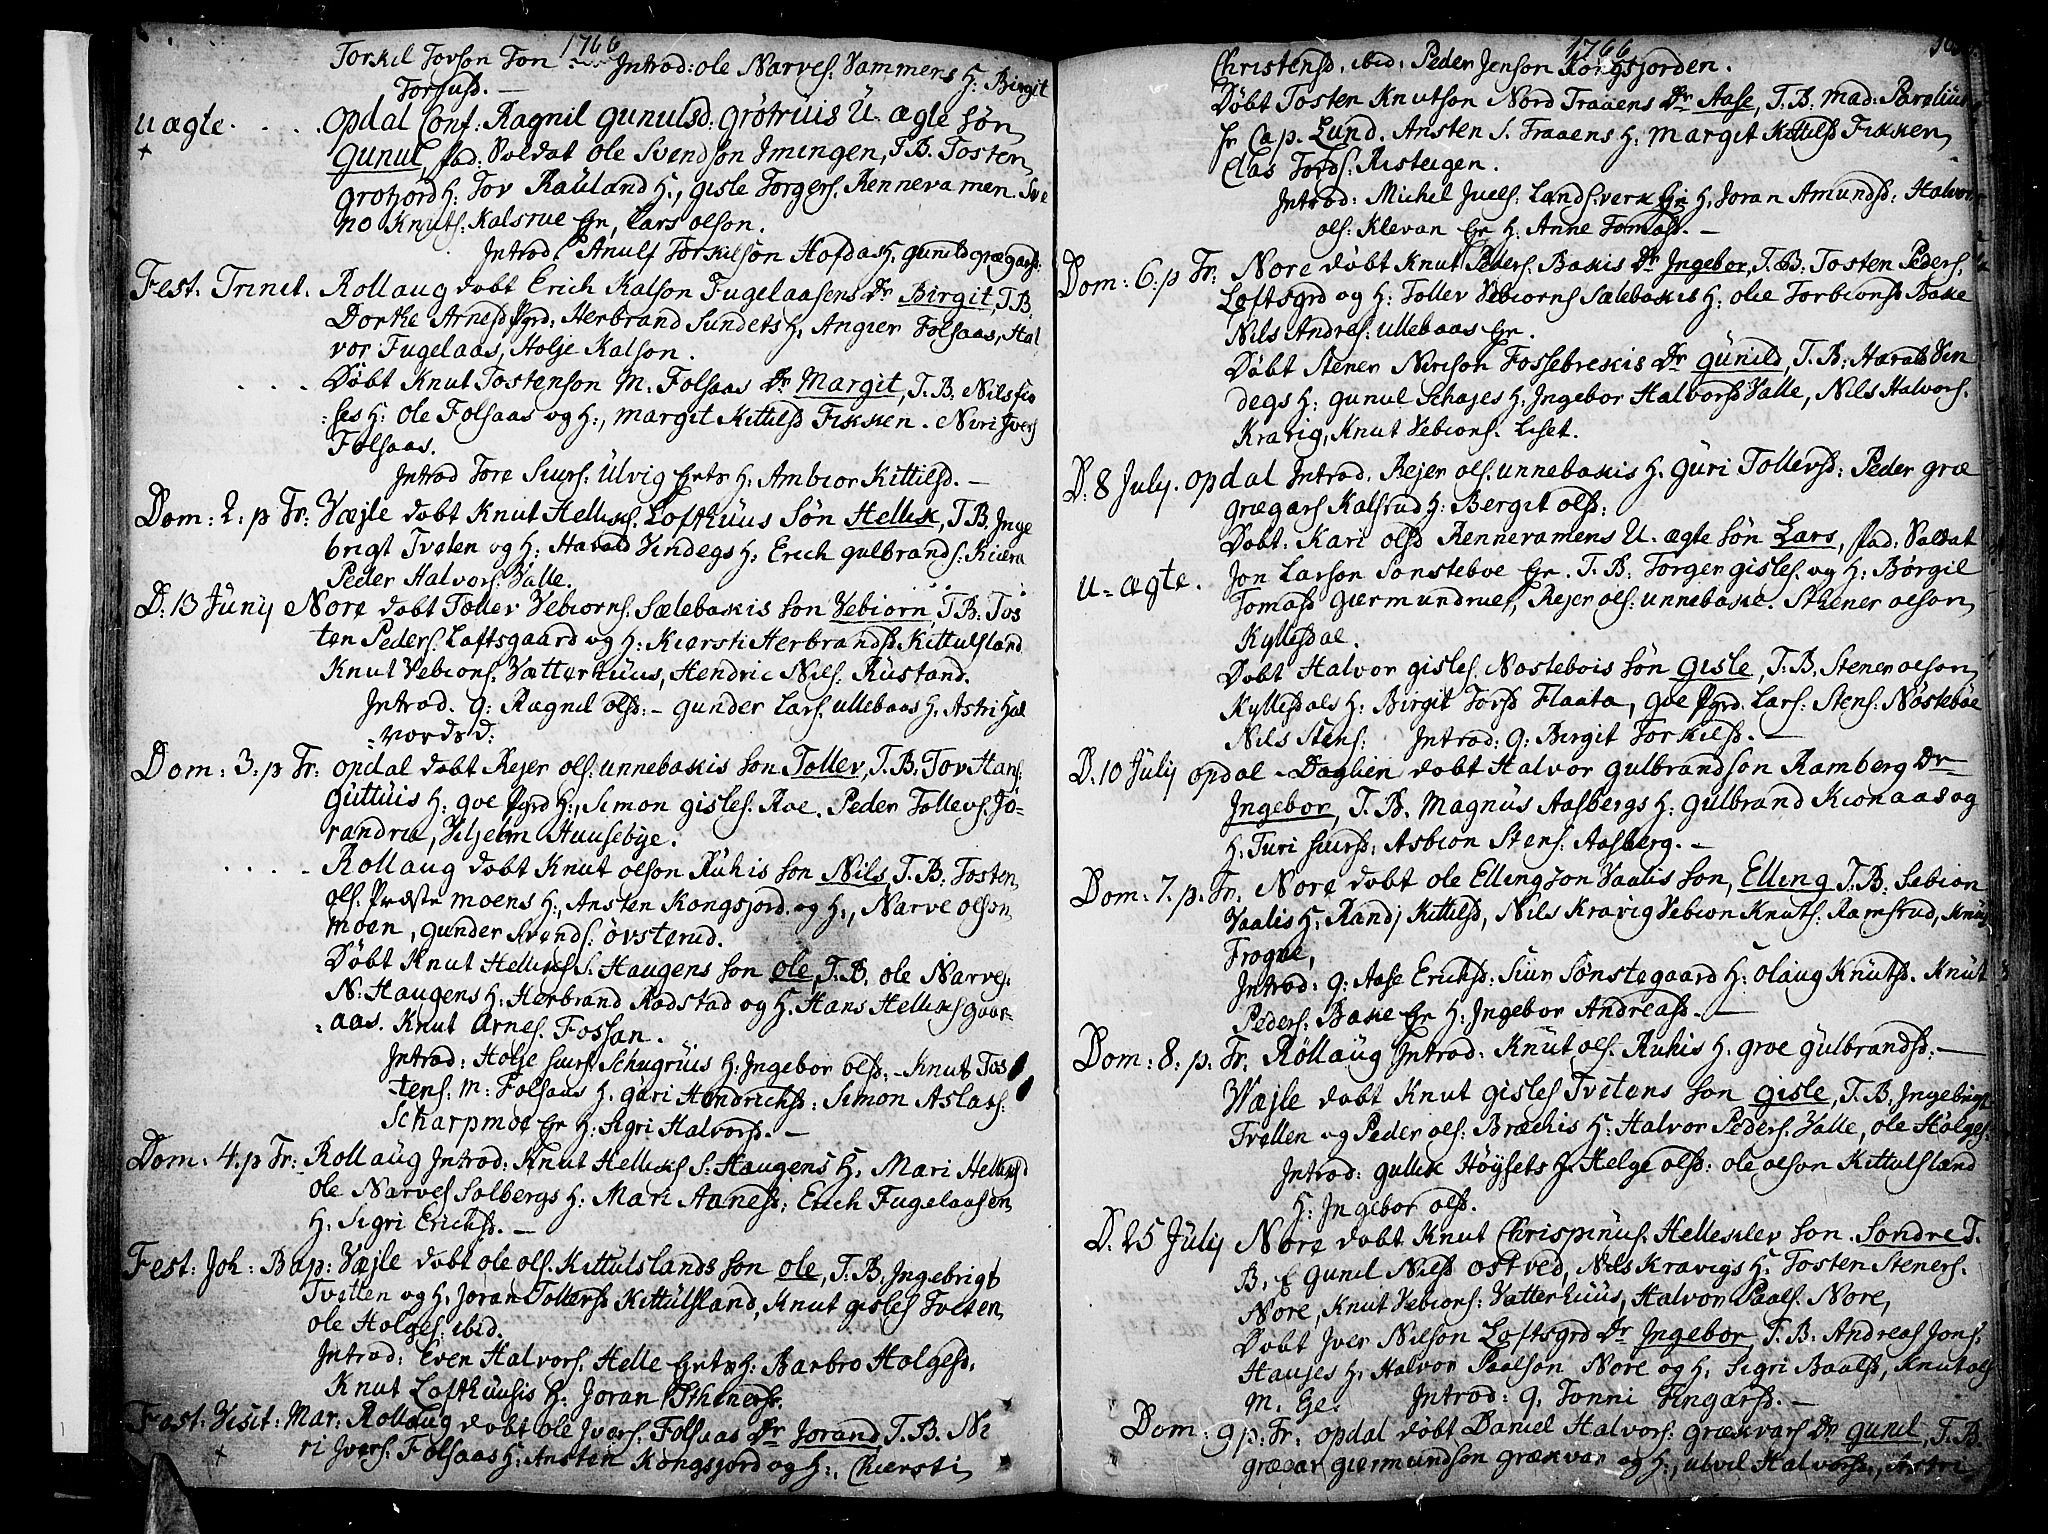 1766
Torkil Tovson Ton Introd: ole Narves. Vammens H: Birgit
Torsusd. —
U ægte. . . . opdal Conf: Ragnil Gunulsd: Grötruis U. ægte søn
Gunul, fad: Soldat Ole Svendson Imingen, T.B. Tosten
Grotjord H: Tov Rauland H., Gisle Torgers. Rennevamen. Sve
no Knuts. Kalsrue Er, Lars olson.
Introd: Anulf Torkilson Hofdas H. Gunild grægars:
Fest. Trinit. Rollaug døbt Erich Kalson Fugelaasens Dr Birgit, T.B.
Dorte Arnesd Pgrd: Herbrand Sundets H, Angier Folsaas, Hal
vor Fugelaas, Holje Kalson.
. . . . Döbt Knut Tostenson M. Folsaas Dr Margit, T.B. Nils
ses H: ole Folsaas og H:, Margit Kittilsd Fikken. Niri Ivers
Folsaas.
Introd Tore Siurs: Ulvig H: Ambior Kittilsd. —
Dom: 2. p Tr: Væjle døbt Knut Helliks. Lofthuus Søn Hellik, T.B. Inge
brigt Tveten og H: Harald Vindegs H, Erich gulbrands: Kiæra
Peder Halvors. Valle.
D: 13 Junij Nore døbt Tollev Vebiorns. Sælebakis søn Vebiorn, T.B: Tos
ten Peders. Loftsgaard og H: Kiersti Herbrandsd Kittulsland
Knut Vebions. Vætterhuus, Hendric Nils. Rustand.
Introd. q: Ragnil olsd: — gunder Lars. ullebaas H: Astri Hal
=vordsd:
Dom: 3. p Tr: opdal døbt Rejer ols. unnebakis søn Tollev, T.B. Tov Hans:
Guttuis H: goe Pgrd H:, Simon gisles. Roe. Peder Tollevs. Jö-
randru, Viljelm Huusebye.
. . . . Rollaug døbt Knut olson Ruhis søn Nils, T.B: Tosten
ols. Præste moens H:, Ansten Kongsjord og H:, Narve olson
moen, gunder Svends. Øvsterud.
Döbt Knut Helliks S. Haugens søn ole, T.B. ole Narves.
N: Haugens H: Herbrand Rodstad og H. Hans Helliks gvor-
=aas. Knut Arnes. Fossan.
Introd: Holje Siurs Schugruis H: Ingebor olsd: - Knut Tos
tens. M: Folsaas H. guri Hendrichsd: Simon Aslacs:
Scharpmoe Er H: Sigri Halvorsd. —
Dom: 4. p Tr: Rollaug Introd: Knut Helliks S: Haugens H, Mari Helliksd
ole Narves Solbergs H: Mari Annesd: Erich Fugelaasen
H: Sigri Erichsd. —
Fest: Joh: Bap: Væjle døbt ole ols. Kittulslands søn ole, T.B. Ingebrigt
Tvetten og H, Joran Tollevsd Kittulsland, Knut gisles Tveten
ole Holges: ibid.
Introd: Even Halvors. Helle H: Barbro Holgesd.
Knut Lofthuusis H: Joran Sthenersd.
Fest: Visit: Mar: Rollaug døbt ole Ivers. Folsaas Dr Jorand, T.B. Ni
ri Ivers. Folsaas H: Ansten Kongsjord og H:, Chiersti
1766
Christensd, ibid: Peder Jenson Kongsjorden.
Döbt Tosten Knutson Nord Traaens Dr Aase, T.B: Mad: Parelius
Hr Cap. Lund. Ansten S. Traaens H: Margit Kittilsd Fikken
Clas Tords. Risteigen.
Introd: Michil Juels: Landsverk Er H, Joran Amundsd: Halvor
ols. Klevan Er H: Anne Tomasd. —
Dom: 6. p Tr: Nore døbt Knut Peders. Bakis Dr Ingebor, T.B: Tosten Peders.
Loftsgrd og H: Tollev Vebiorns Sælebakis H: olie Torbionsd Bake
Nils Andres: ullebaas Er.
Döbt Stener Nirison Fossebrekis Dr Gunild, T.B: Harals Vin
degs H: gunul Schajes H: Ingebor Halvorsd Valle, Nils Halvors.
Kravig, Knut Vebions. Liset.
D: 8 July. opdal Introd. Rejer ols. unnebakis H. guri Tollevsd: Peder græ
grægars Kalsrud H: Bergit olsd:
Döbt: Kari olsd Rennevamens U. ægte søn Lars, fad. Soldat
U=ægte. Jon Larson Sonsteboe Er. T.B: Torger gisles. og H: Børgil
Tomasd giermundrues, Rejer ols. unnebake. Sthener olson
Kyllesdal.
Döbt Halvor gisles. Nostebois søn Gisle, T.B. Stener olson
Kyllesdals H: Birgit Tovsd Flaata, goe Pgrd. Lars: Stens. Nösteböe
Nils Stens: Introd: q: Birgit Torkilsd. —
D. 10 Julij opdal - Daglien døbt Halvor gulbrandson Ramberg Dr
Ingebor, T.B. Magnus Aasbergs H: gulbrand Kionaas og
H: Turi Siursd: Asbion Stens: Aasberg. —
Dom: 7. p. Tr: Nore døbt ole Ellingson Vaalis søn, Elling T.B: Sebion
Vaalis H: Randj Kittilsd, Nils Kravig Vebion Knuts. Ramsrud, Knut
Frogne,
Introd: q: Aase Erichsd: Siur Sønstegaard H: olaug Knutsd. Knut
Peders: Bake Er H: Ingebor Andreasd. —
Dom: 8. p. Tr. Rollaug Introd: Knut ols. Ruhis H. groe gulbrandsd: —
Væjle døbt Knut gisles Tvetens søn Gisle, T.B, Ingebrigt
Tvetten og Peder ols: Bræckis H: Halvor Peders. Valle, ole Holges.
Introd: gullik Höysets H, Helge olsd: ole olson Kittulsland
H: Ingebor olsd.
D. 25 Julij Nore døbt Knut Chrispinus. Helleklev søn. Søndre T.
B. E Gunil Nilsd ostved, Nils Kravigs H: Tosten Steners.
Nore, Knut Vebions: Vatterhuus, Halvor Paals. Nore,
Döbt Iver Nilson Loftsgrd Dr Ingebor, T.B: Andreas Jons.
Haujes H, Halvor Paalson Nore og H, Sigri Baalsd, Knut ols
M. Ge. Introd: q. Tonni Tingarsd. —
Dom: 9 p. Tr: opdal døbt Daniel Halvors: grækvars Dr Gunil, T.B.
grægar giermundson grækvar og H:, ulvil Halvorsd., Astri